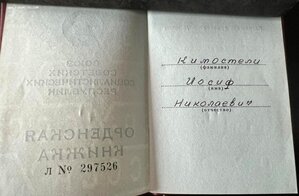 СОЮЗ
СОВЕТСКИХ
СОЦИАЛИСТИЧЕСКИХ
РЕСПУБЛИК
ОРДЕНСКАЯ
КНИЖКА
Л № 297526
Кимостели
(фамилия)
Иосиф
(имя)
Николаевич
(отчество)